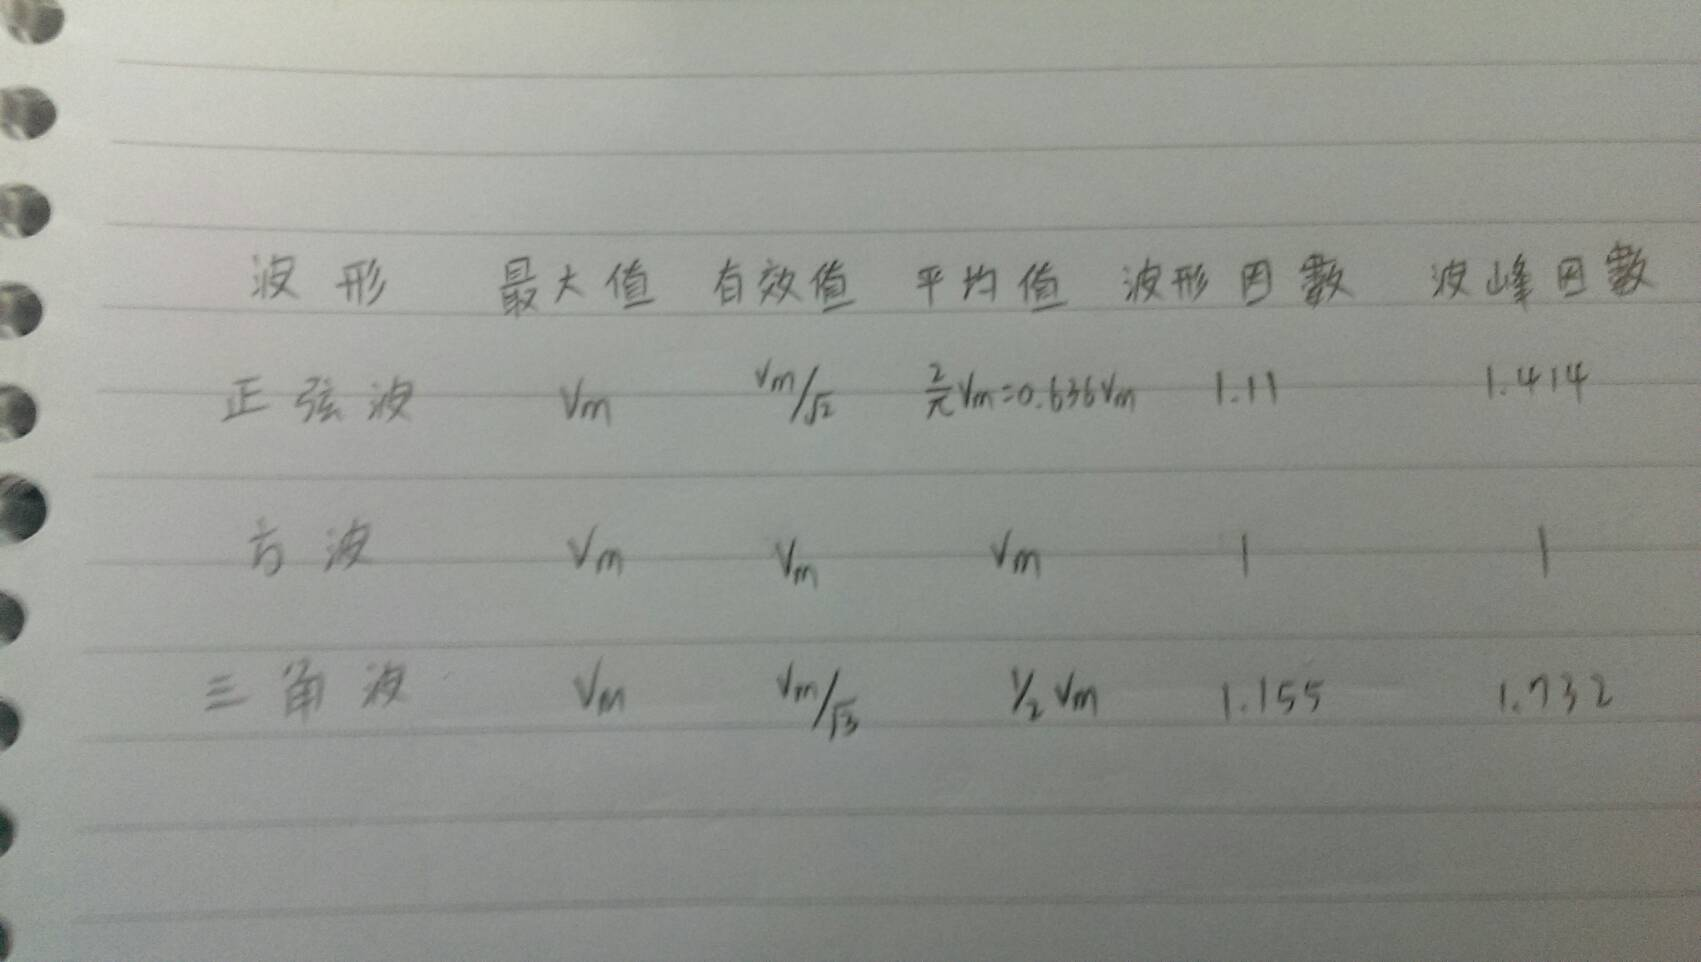 波形 最大值 有效值 平均值 波形因數 波峰因數
正弦波 Vm Vm/√2 2/π Vm=0.636Vm 1.11 1.414
方波 Vm Vm Vm 1 1
三角波 Vm Vm/√3 1/2 Vm 1.155 1.732